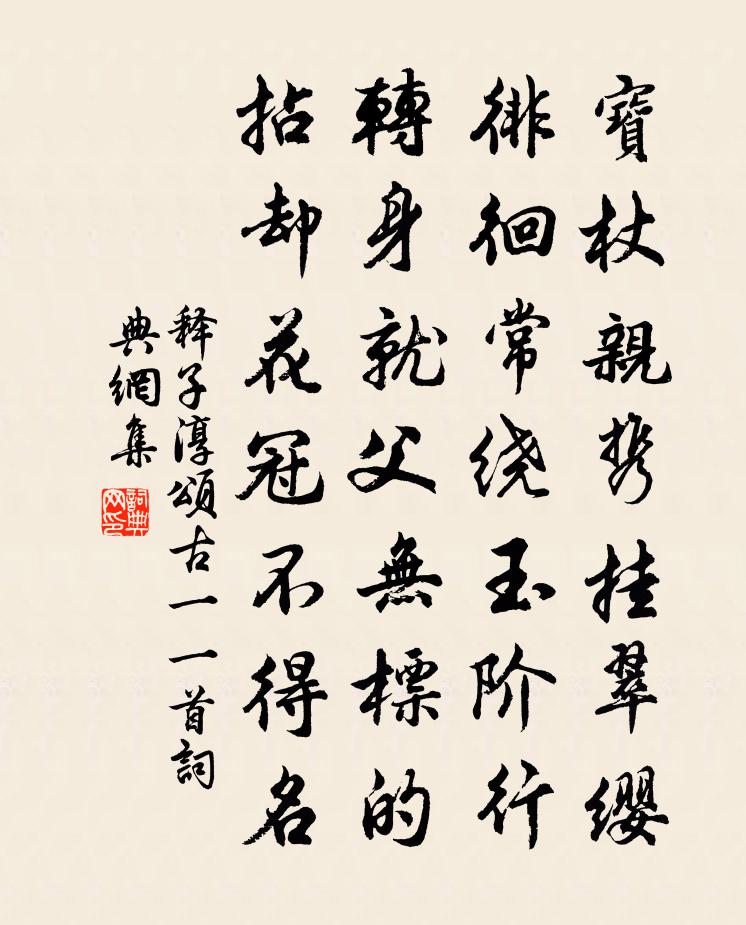 寶杖親携挂翠缨
徘徊常绕玉阶行
轉身就父無標的
拈却花冠不得名
释子淳頌古一一首詞
典網集
詞典
网印